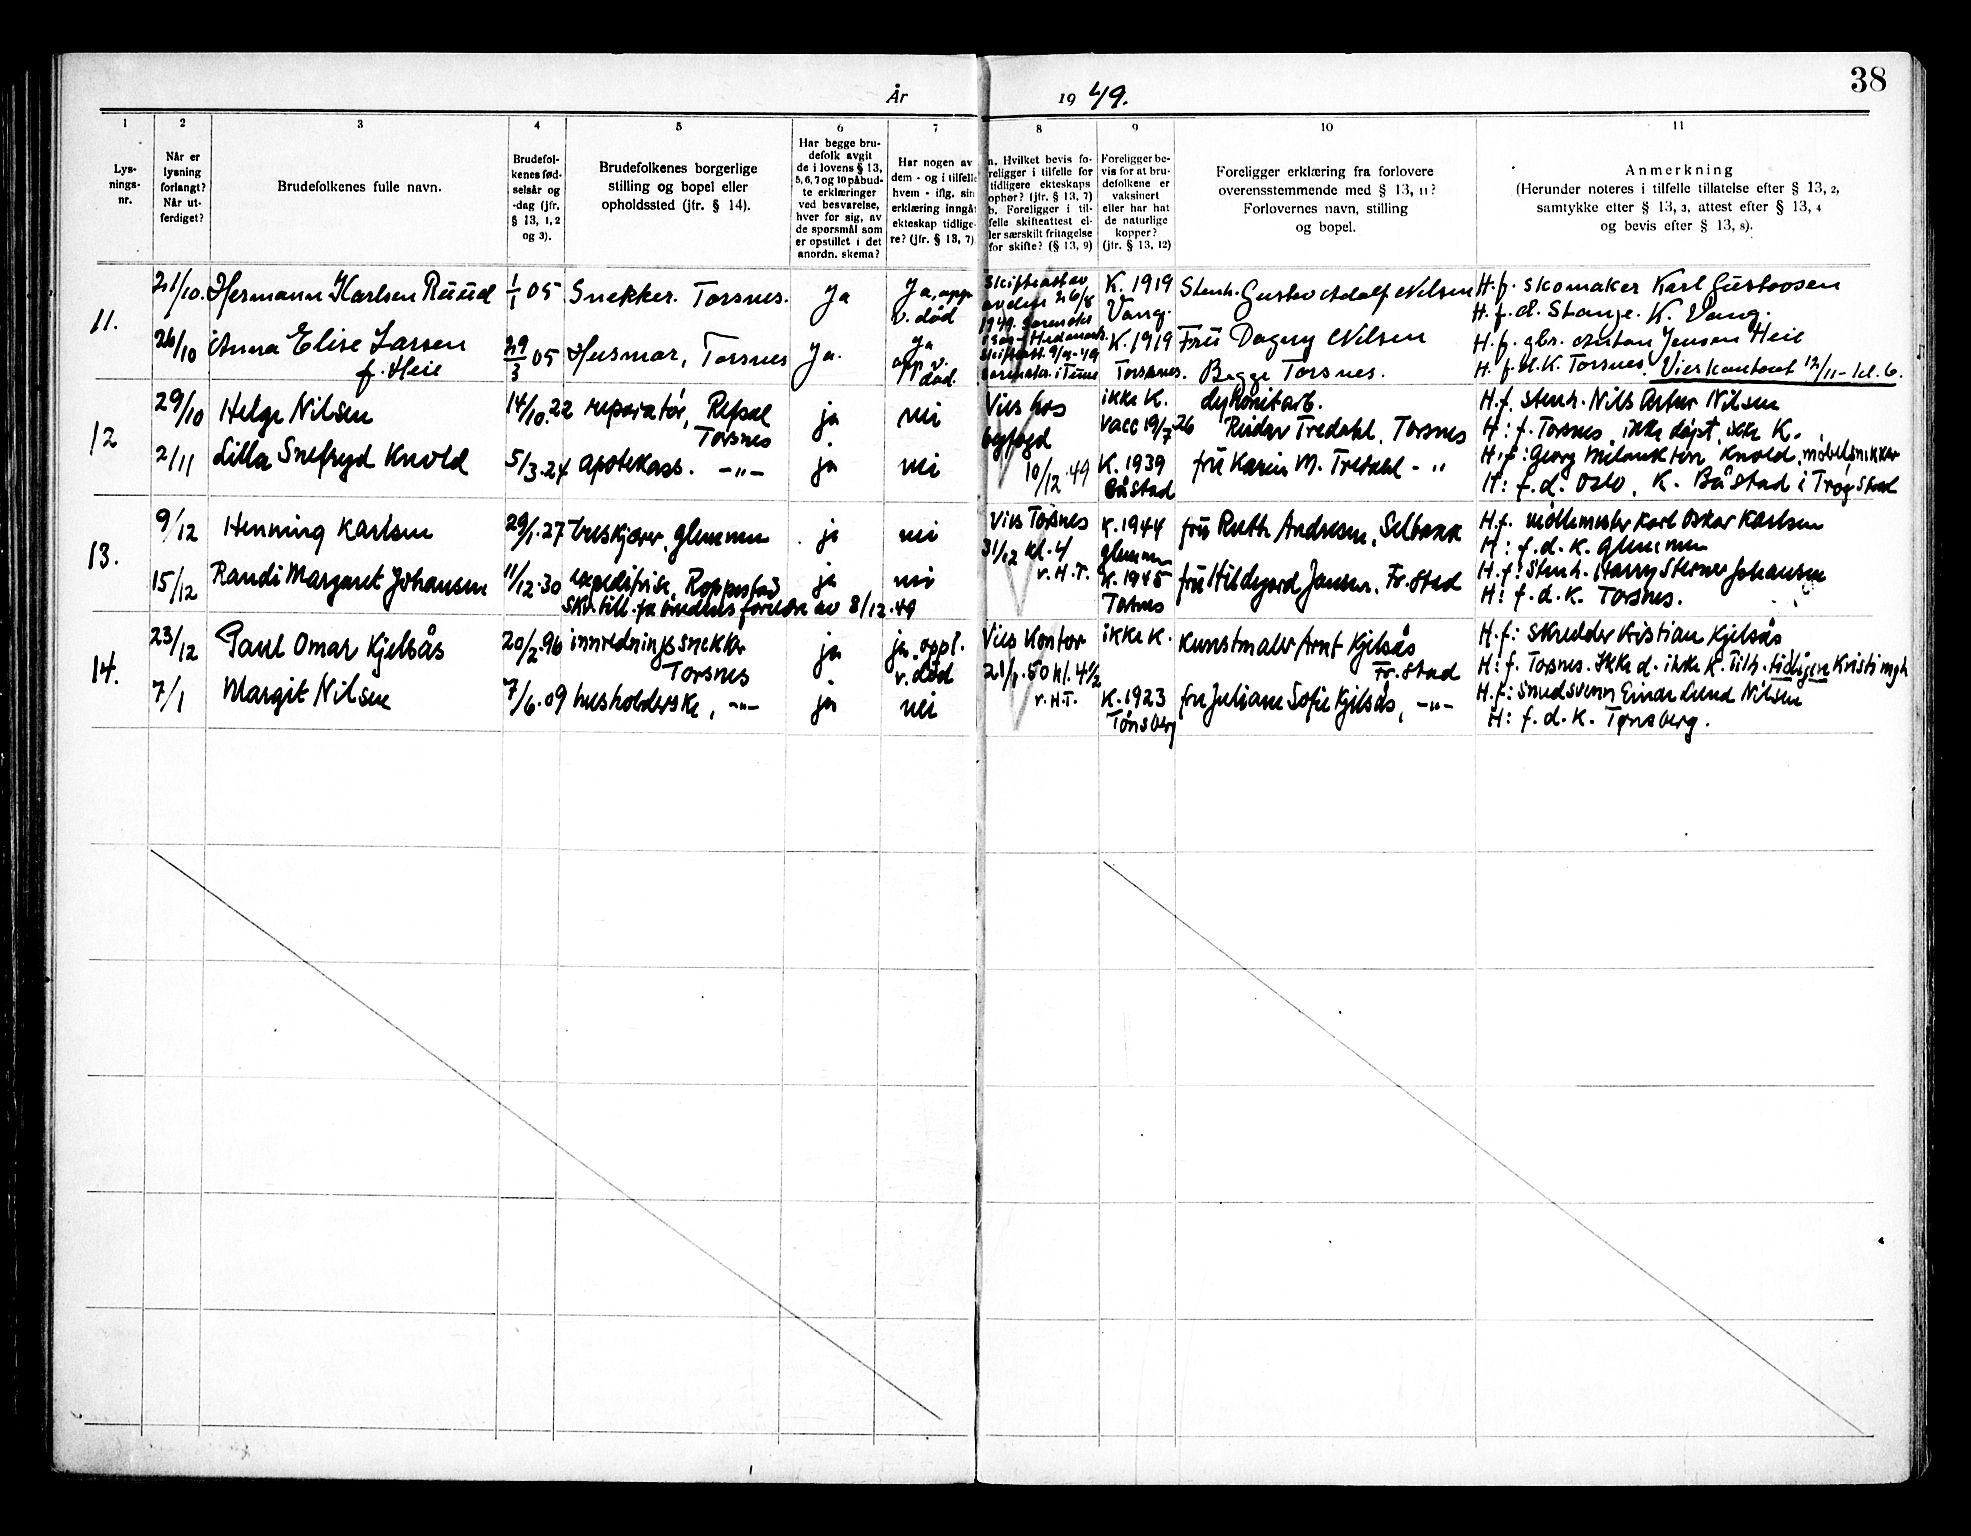 38
År 1949.
1 2 3 4 5 6 7 8 9 10 11
Lys-
nings-
nr.
Når er
lysning
forlangt?
Når ut-
ferdiget?
Brudefolkenes fulle navn.
Brudefol-
kenes fød-
selsår og
-dag (jfr.
§ 13, 1, 2
og 3).
Brudefolkenes borgerlige
stilling og bopel eller
opholdssted (jfr. § 14).
Har begge bru-
defolk avgit
de i lovens § 13,
5, 6, 7 og 10 påbud-
te erklæringer
ved besvarelse,
hver for sig, av
de spørsmål som
er opstillet i det
anordn. skema?
Har nogen av
dem - og i tilfelle
hvem - iflg. sin
erklæring inngå
ekteskap tidlige-
re? (jfr. § 13, 7)
a. Hvilket bevis fo-
religger i tilfelle for
tidligere ekteskaps
ophør? (jfr. § 13, 7)
b. Foreligger i til-
felle skifteattest el-
ler særskilt fritagelse
for skifte? (§ 13, 9)
Foreligger be-
vis for at bru-
defolkene er
vaksinert
eller har hat
de naturlige
kopper?
(jfr. § 13, 12)
Foreligger erklæring fra forlovere
overensstemmende med § 13, 11?
Forlovernes navn, stilling
og bopel.
Anmerkning
(Herunder noteres i tilfelle tillatelse efter § 13, 2,
samtykke efter § 13, 3, attest efter § 13, 4
og bevis efter § 13, 8).
11.
21/10. Hermann Karlsen Ruud 1/1 05 Snekker. Torsnes. Ja Ja, opp.
v. død
Skifteatt av
av den 26/8
1949. Sorenskr.
Hedemark.
K. 1919
Vang.
Stenh. Gustav Adolf Nilsen
H.f. skomaker Karl Gustavsen
H.f.d. Stange. K. Vang.
26/10 Anna Elise Larsen
f. Heie
29/3 05 Husmor, Torsnes Ja. Ja
opp. v.
død.
Skifteatt. 9/9-49
sorenskr. i Tune
K. 1919
Torsnes.
Fru Dagny Nilsen
Begge Torsnes.
H.f. gbr. Anton Jensen Heie
H.f.d.K. Torsnes. Vies kontoret 12/11- kl. 6.
12
29/10 Helge Nilsen 14/10.22 reparatør, Refsal
Torsnes
ja nei Vies hos
byfogd
10/12 49
ikke K.
vacc 19/7 26
Reidar Tredahl, Torsnes
H.f. stenh. Nils Artur Nilsen
H: f. Torsnes, ikke døpt, ikke K.
2/11 Lilla Snefryd Knold 5/3.24 apotekass. -"- ja nei K. 1939
Båstad
fru Karin M. Tredahl - "
H.f: Georg Milankton Knold, møbelsnikker
H: f.d. Oslo. K. Båstad i Trøgstad
13.
9/12 Henning Karlsen 29/1.27 treskjærer, Glemmen ja nei Vies Torsnes
31/12 kl. 4
v. H.T.
K. 1944
Glemmen
fru Ruth Andresen, Selbakk
H.f. vidlemester Karl Oskar Karlsen
H: f.d.K. Glemmen
15/12 Randi Margaret Johansen 11/12.30 expeditrise, Roppestad ja nei
Skr. till. fra brudens foreldre av 8/12.49
K. 1945
Torsnes
fru Hildegard Jansen, Fr.stad
H.f: Stenh. Harry Sterner Johansen
H: f.d.K. Torsnes.
14.
23/12 Paul Omar Kjelsås 20/2.96 innredningssnekker
Torsnes
ja ja, oppl.
v. død
Vies Kontor
21/1.50 kl. 4½
v. H.T.
ikke K.
Kunstmaler Arnt Kjelsås
Fr.stad
H.f: skredder Kristian Kjelsås
H: f. Torsnes. Ikke d. ikke K. Tilh. tidligere Kristi mgh
7/1 Margit Nilsen 7/6.09 husholderske, -"- ja nei K. 1923
Tønsberg
fru Juliane Sofie Kjelsås, -"-
H.f: Smedsvenn Einar Lund Nilsen
H: f.d.K. Tønsberg.